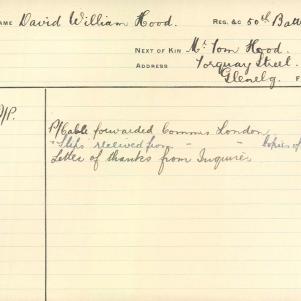 NAME David William Hood. REG. &C 50th Batt
NEXT OF KIN Mr Tom Hood.
ADDRESS Torquay Street.
Glenelg.
P/Cable forwarded Comms London
" received from " " Copies of
Letter of thanks from Inquirer